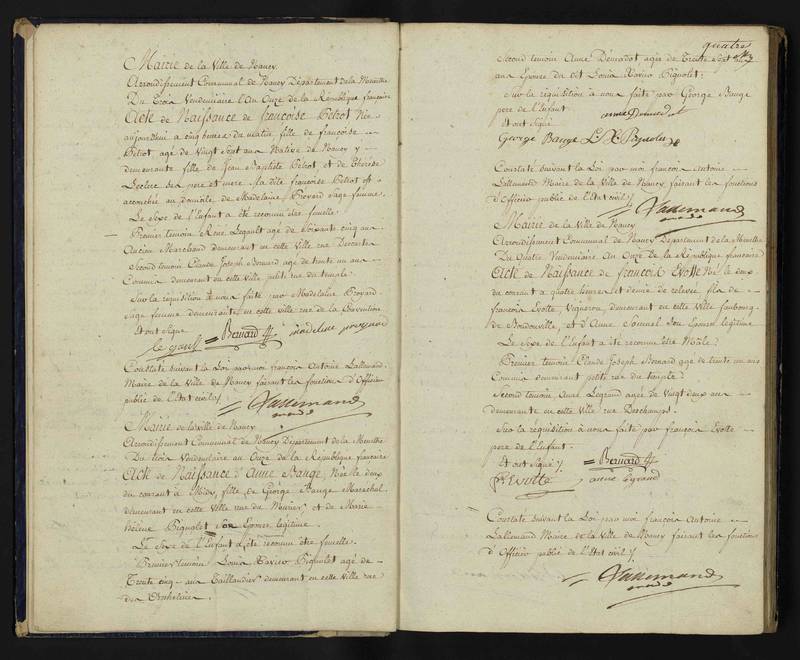 Mairie de la Ville de Nancy
Arrondissement Communal de Nancy Département de la Meurthe
Du Trois Vendemiaire l'An Onze de la République française
Acte de Naissance de françoise Petrot Née
aujourdhui a cinq heures du matin fille de françoise
Petrot agé de Vingt Sept ans Native de Nancy y
demeurante fille de Jean Baptiste Petrot et de Thérèse
Leclere ses pere et mere. la dite françoise Petrot est
accouchée au domicile de Madelaine Provard Sage femme.
Le Sexe de l'Enfant a été reconnu être femelle.
Premier temoin René Legault agé de Soixante cinq ans
Ancien Marchand demeurant en cette Ville rue Descartes
Second temoin Claude Joseph Bernard agé de trente un ans
Commis demeurant en cette Ville petite rue du temple.
Sur la réquisition à nous faite par Madelaine Provard
Sage femme demeurante en cette Ville rue de la Convention
Et ont Signé
le gault = Bernard madeleine
Constaté suivant la Loi par moi françois Antoine Lallemand
Maire de la Ville de Nancy faisant les fonctions d'Officier
public de l'Etat civil
Lallemand
Mairie de la ville de Nancy
Arrondissement Communal de Nancy Département de la Meurthe
Du trois Vendemiaire an Onze de la République française
Acte de Naissance d'Anne Bauge, Née le deux
du courant à Midy, fille de George Bauge Maréchal
demeurant en cette Ville rue du Meurier, et de Marie
hélene Pignolet Son Epouse légitime.
Le Sexe de l'Enfant a été reconnu être femelle.
Premier temoin Louis Xavier Pignolet agé de
Trente cinq ans Taillandier demeurant en cette Ville rue
des Orphelines.
quatre
Second temoin Anne agée de Trente Sept
ans Epouse du dit Louis Xavier Pignolet.
Sur la réquisition à nous faite par George Bauge
pere de l'Enfant anne
Et ont Signé
George Bauge L X Pignolet
Constaté suivant la Loi par moi françois Antoine
Lallemand Maire de la Ville de Nancy faisant les fonctions
d'Officier public de l'Etat civil
Lallemand
Mairie de la Ville de Nancy
Arrondissement Communal de Nancy Département de la Meurthe
Du Quatre Vendemiaire an Onze de la République française
Acte de Naissance de françois Evotte Né le deux
du courant a quatre heures et demie de relevée fils de
françois Evotte, Vigneron demeurant en cette Ville faubourg
de Boudonville, et d'Anne Son Epouse légitime.
Le Sexe de l'Enfant a été reconnu être Mâle.
Premier temoin Claude Joseph Bernard agé de trente un ans
Commis demeurant petite rue du temple
Second temoin Anne Legrand agée de Vingt deux ans
demeurante en cette Ville rue Deschamps.
Sur la réquisition à nous faite par françois Evotte
pere de l'Enfant.
Et ont Signé = Bernard
Evotte anne legrand
Constaté suivant la Loi par moi françois Antoine
Lallemand Maire de la Ville de Nancy faisant les fonctions
d'Officier public de l'Etat civil
Lallemand